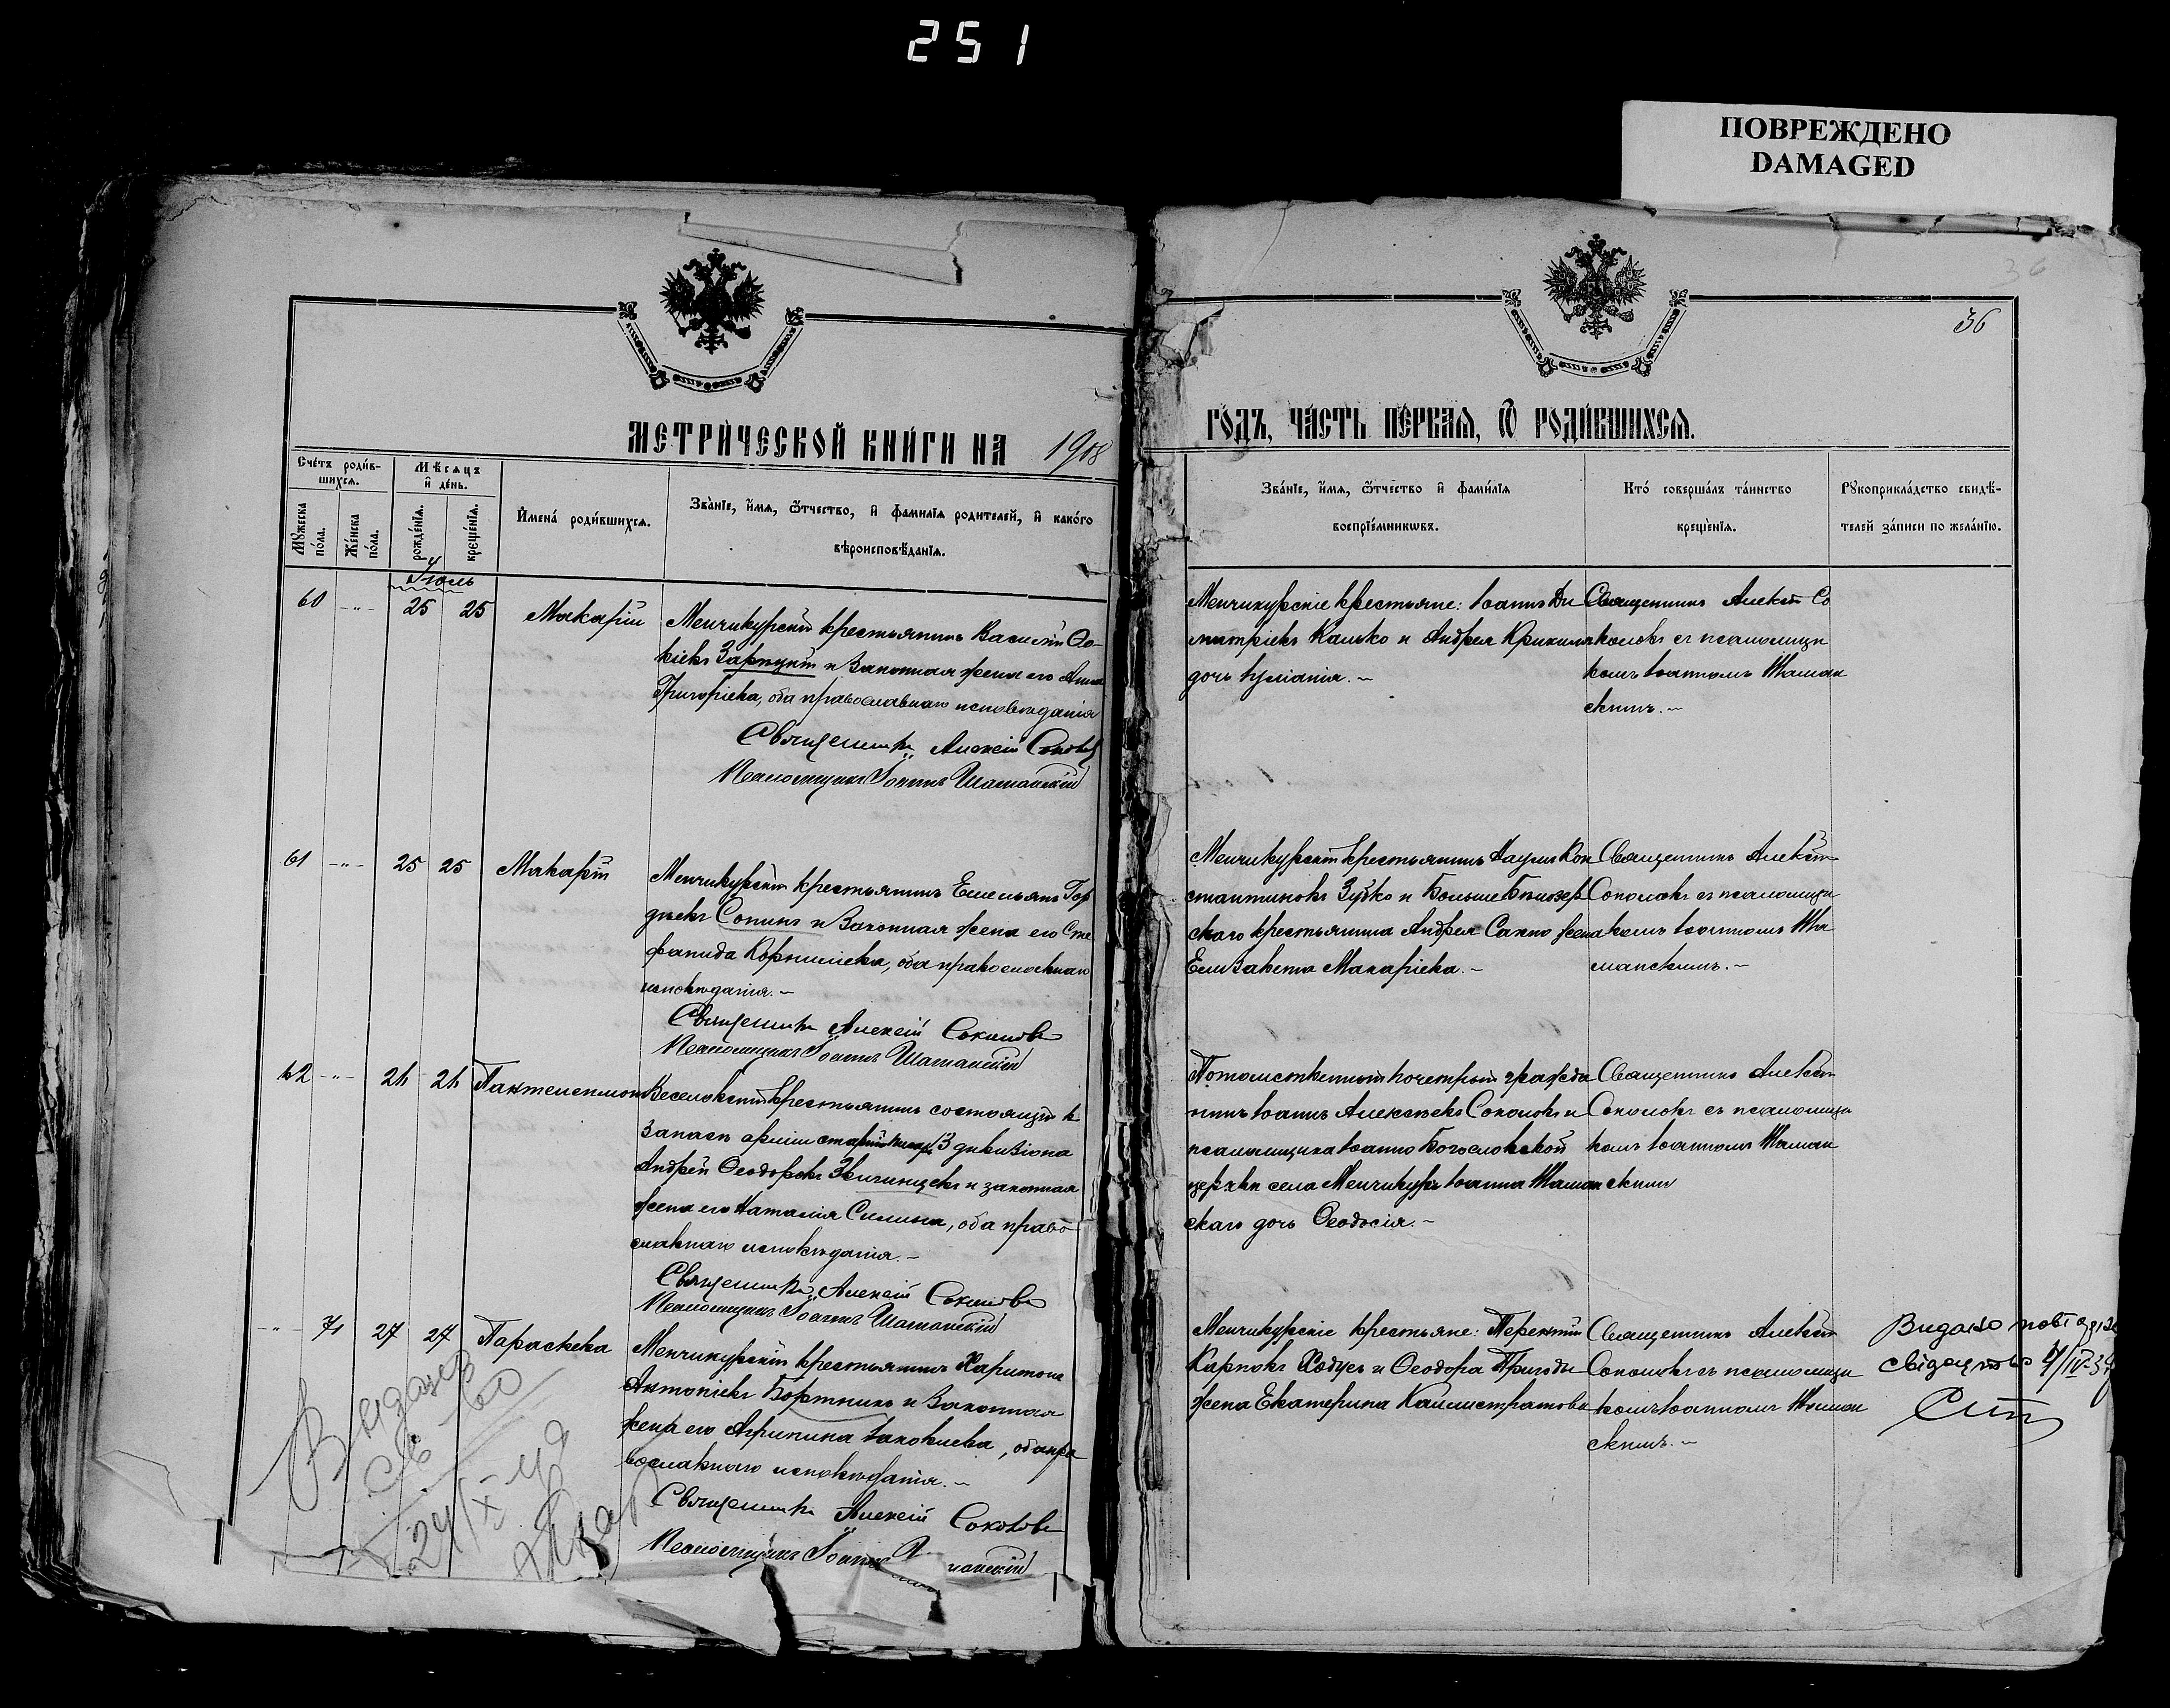 251
ПОВРЕЖДЕНО
DAMAGED
36
МЕТРИЧЕСКОЙ КНИГИ НА 1908
ГОДЪ, ЧАСТЬ ПЕРВАЯ, Ѿ РОДИВШИХСЯ.
Счетъ родив-
шихся.
Мужеска
пола.
Женска
пола.
Мѣсяцъ
и день.
рожденія.
крещенія.
Имена родившихся.
Званіе, имя, ѿчество, и фамилія родителей, и какого
вѣроисповѣданія.
Званіе, имя, ѿчество и фамилія
воспріемниковъ.
Кто совершалъ таинство
крещенія.
Рукоприкладство свидѣ-
телей записи по желанію.
Іюль
60 -"- 25 25 Макарій
Менчикурскій крестьянинъ Василій
и законная жена его Анна
Григоріева, оба православнаго исповѣданія
Священникъ Алексій Соколовъ
Псаломщикъ Іоаннъ Шаманскій
Менчикурскіе крестьяне: Іоаннъ Ди
митріевъ Калько и Андрея
дочь
Священникъ Алексій Со
коловъ съ псаломщи
комъ Іоанномъ Шаман
скимъ.~
61 -"- 25 25 Макарій
Менчикурскій крестьянинъ Емельянъ Гор
дѣевъ Сопинъ и законная жена его Сте
фанида Корниліева, оба православнаго
исповѣданія.~
Священникъ Алексій Соколовъ
Псаломщикъ Іоаннъ Шаманскій
Менчикурскій крестьянинъ Наумъ Кон
стантиновъ Зубко и Больше Бѣлозер
скаго крестьянина Андрея Сахно жена
Елизавета Макаріева.~
Священникъ Алексій
Соколовъ съ псаломщи
комъ Іоанномъ Ша
манскимъ.~
62 -"- 26 26 Пантелеимонъ
Веселовскій крестьянинъ состоящій въ
запасѣ арміи 3 дивизіона
Андрей Ѳеодоровъ Звичинцевъ и законная
жена его Наталія Силина, оба право
славнаго исповѣданія.~
Священникъ Алексій Соколовъ
Псаломщикъ Іоаннъ Шаманскій
Потомственный почетный гражда
нинъ Іоаннъ Алексѣевъ Соколовъ и
псаломщика Іоанно Богословской
церкви села Менчикуръ Іоанна Шаман
скаго дочь Ѳеодосія.~
Священникъ Алексій
Соколовъ съ псаломщи
комъ Іоанномъ Шаман
скимъ
-"- 71 27 27 Параскева
Менчикурскій крестьянинъ Харитонъ
Антоніевъ Бортникъ и законная
жена его Агрипина Іаковлева, оба пра
вославнаго исповѣданія.~
Священникъ Алексій Соколовъ
Псаломщикъ Іоаннъ
Менчикурскіе крестьяне: Терентій
Карповъ и Ѳеодора Пригоды
жена Екатерина Каллистратова
Священникъ Алексій
Соколовъ съ псаломщи
комъ Іоанномъ Шаман
скимъ.~
Видано
свідоцтво
Выдано
св-во